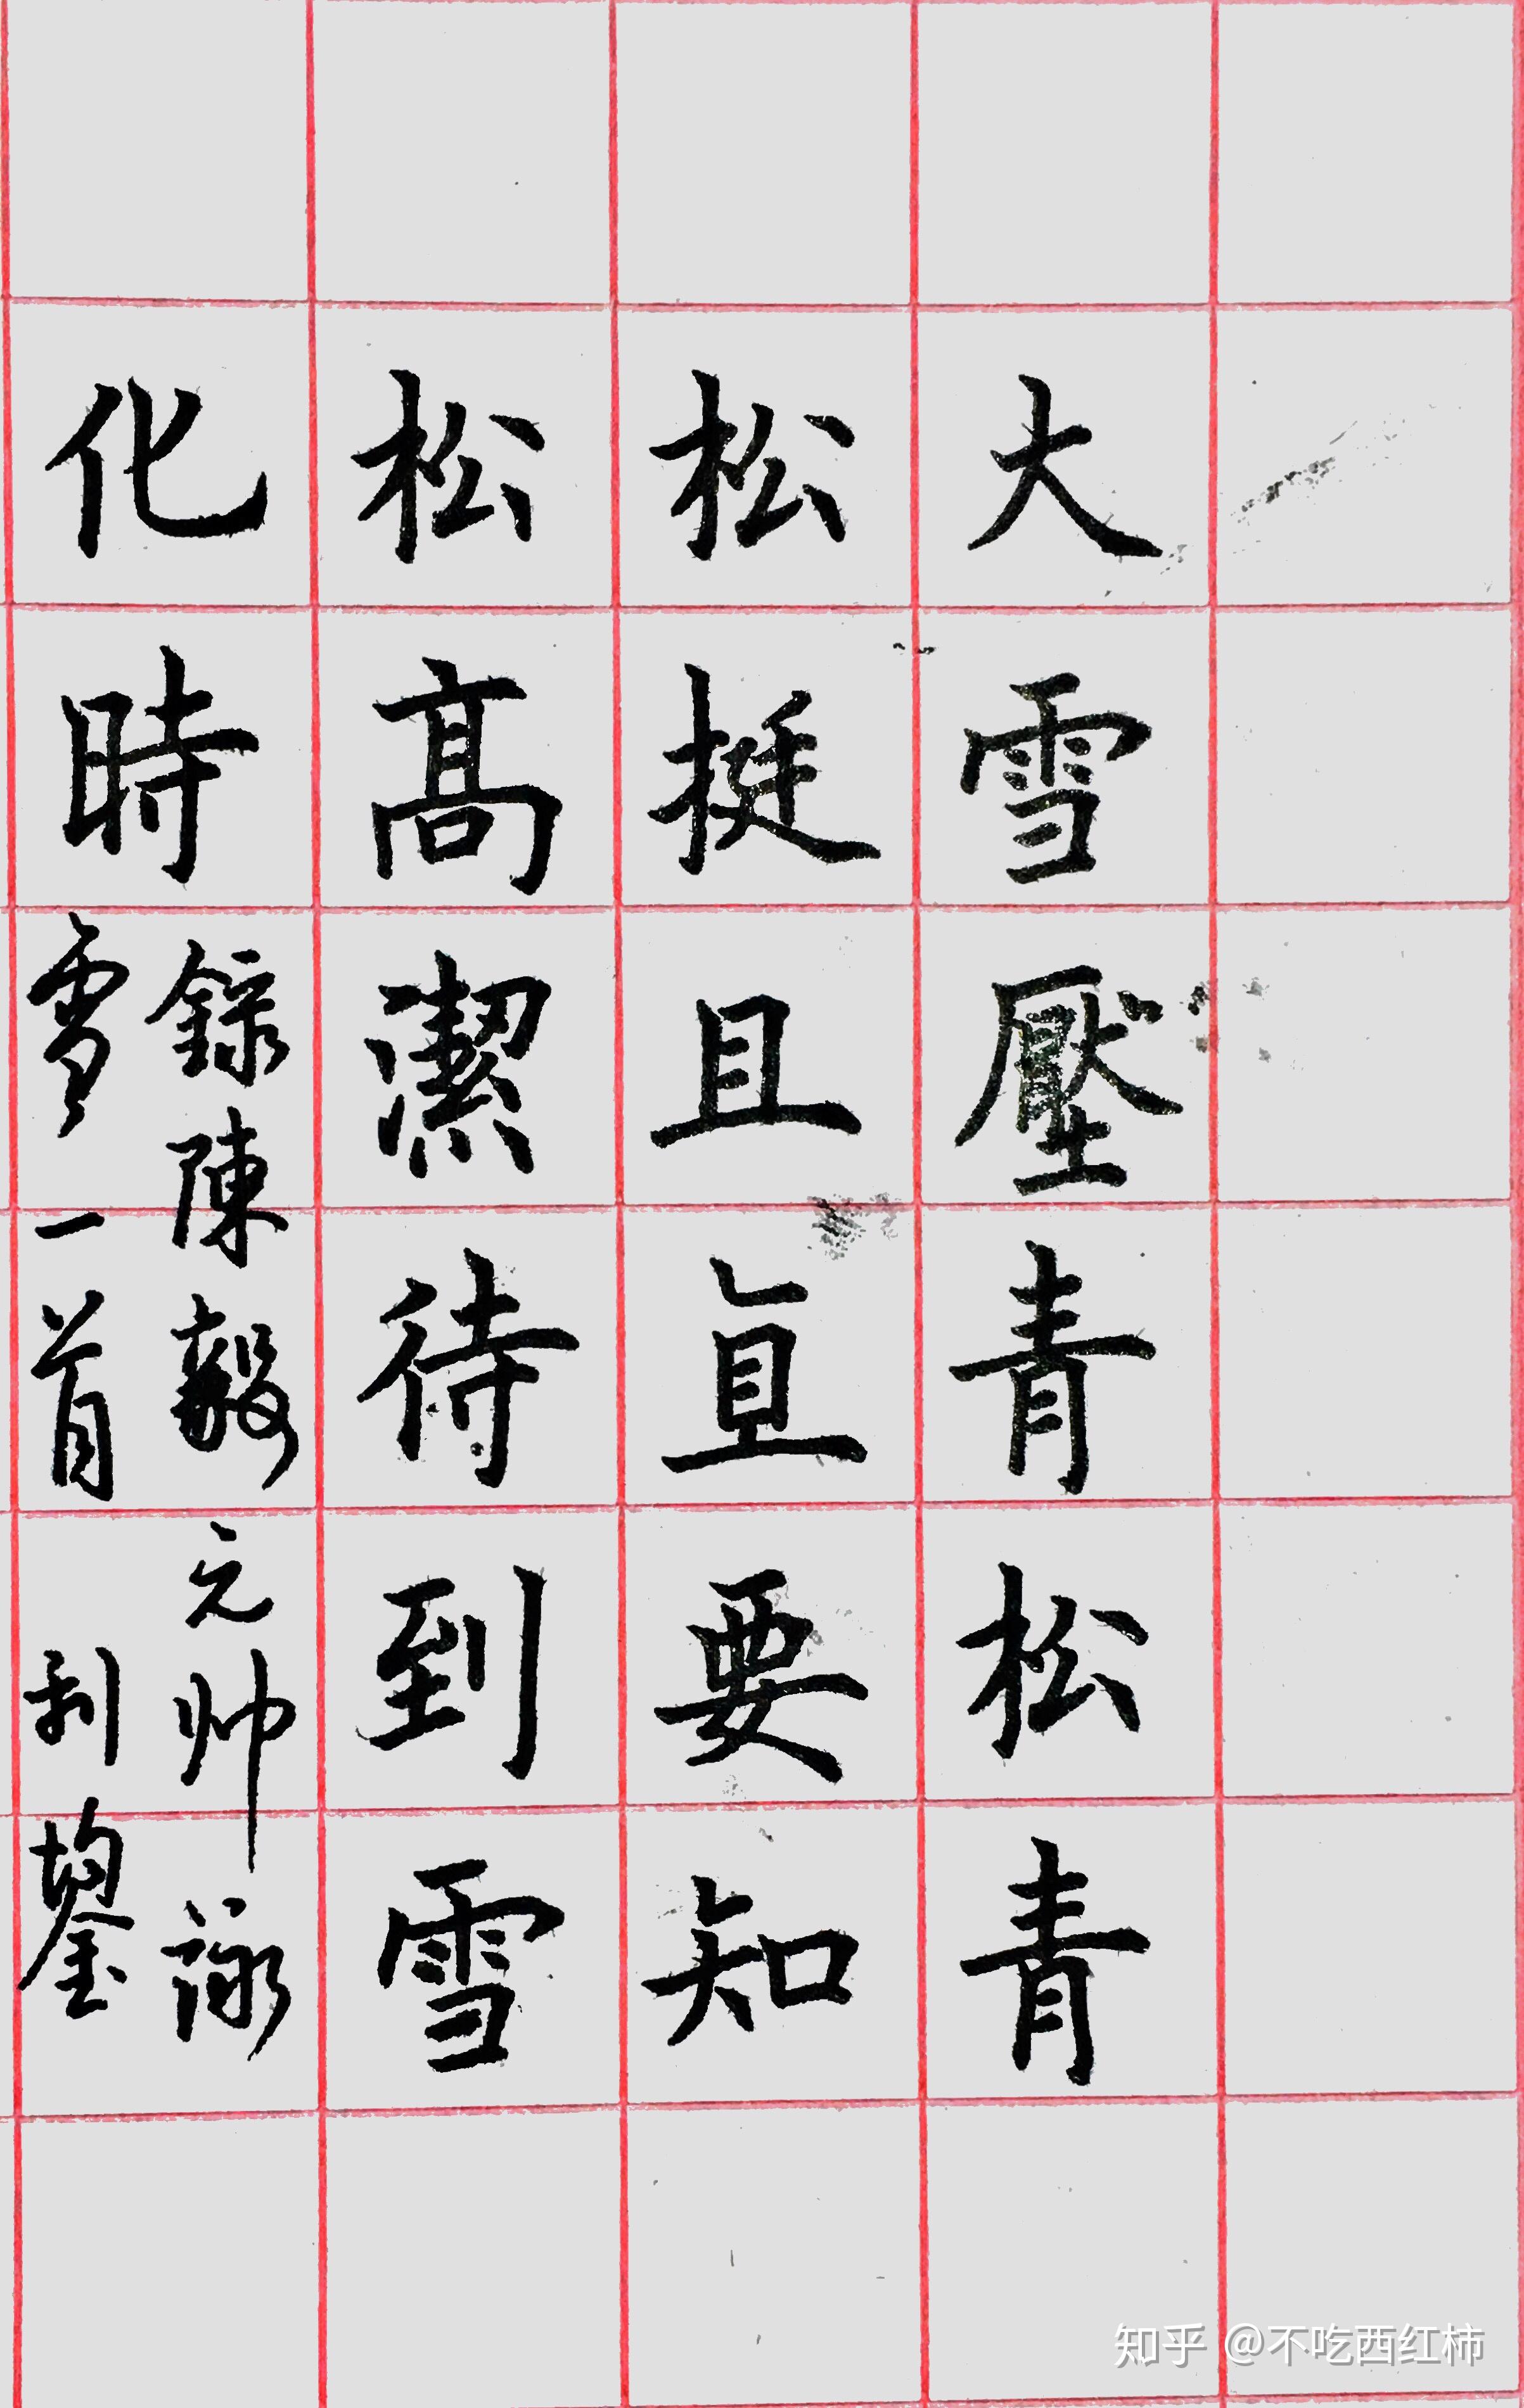 大雪壓青松青
松挺且直要知
松高潔待到雪
化時
錄陳毅元帅詠
雪一首
知乎 @不吃西红柿